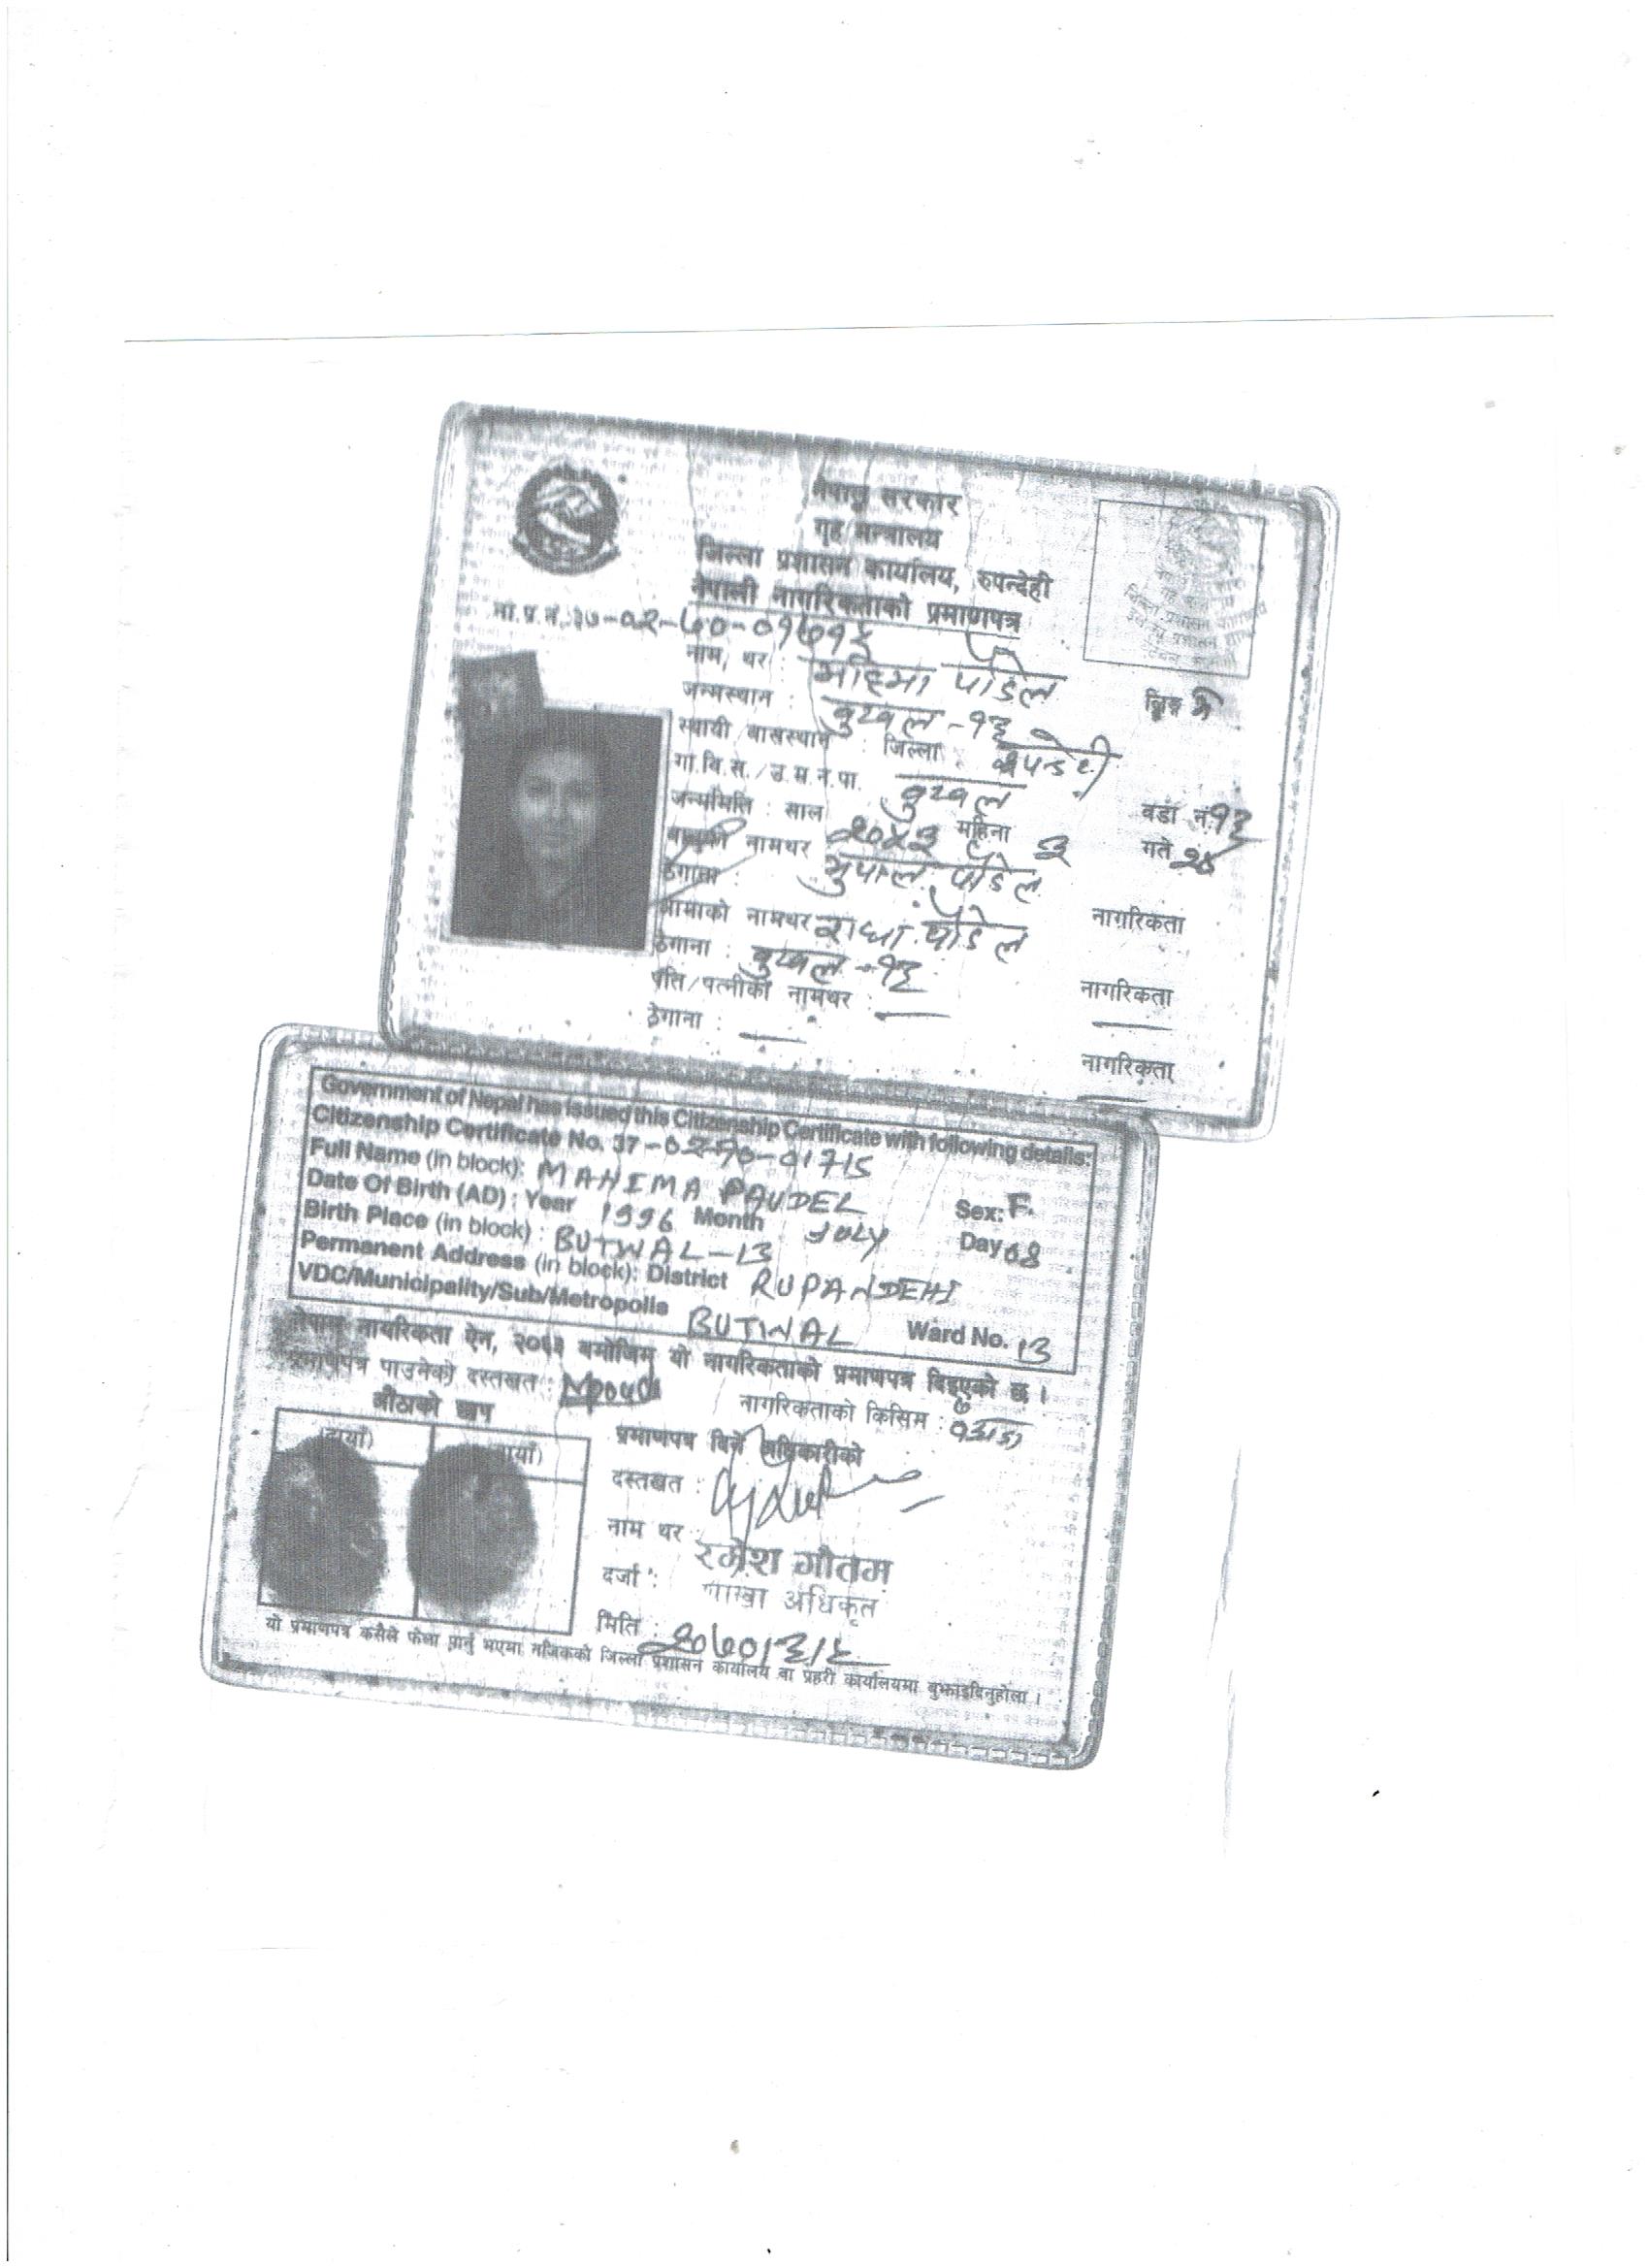 नेपाल सरकार
गृह मन्त्रालय
जिल्ला प्रशासन कार्यालय, रुपन्देही
नेपाली नागरिकताको प्रमाणपत्र
ना.प्र.नं.:३७-०२-७०-०१७१५
नाम, थर : महिमा पौडेल
लिङ्ग
जन्मस्थान : बुटवल-१३
स्थायी बासस्थान : जिल्ला : रुपन्देही
गा.वि.स./उ.म.न.पा. बुटवल वडा नं १३
जन्ममिति : साल २०५३ महिना ३ गते २४
बाबुको नामथर भुपाल पौडेल
ठेगाना : नागरिकता
आमाको नामथर राधा पौडेल
ठेगाना : बुटवल-१३ नागरिकता
पति/पत्नीको नामथर : —
ठेगाना : — नागरिकता
Government of Nepal has issued this Citizenship Certificate with following details:
Citizenship Certificate No. 37-02-70-01715
Full Name (in block): MAHIMA PAUDEL Sex: F.
Date Of Birth (AD) : Year 1996 Month JULY Day 08
Birth Place (in block) : BUTWAL-13
Permanent Address (in block): District RUPANDEHI
VDC/Municipality/Sub/Metropolis BUTWAL Ward No. 13
नेपाल नागरिकता ऐन, २०६३ बमोजिम यो नागरिकताको प्रमाणपत्र दिइएको छ ।
प्रमाणपत्र पाउनेको दस्तखत :
नागरिकताको किसिम : वंशज
औंठाको छाप
प्रमाणपत्र दिने अधिकारीको
दस्तखत :
नाम थर : रमेश गौतम
दर्जा : शाखा अधिकृत
मिति : २०७०।३।६
यो प्रमाणपत्र कसैले फेला पार्नु भएमा नजिकको जिल्ला प्रशासन कार्यालय वा प्रहरी कार्यालयमा बुझाइदिनुहोला ।